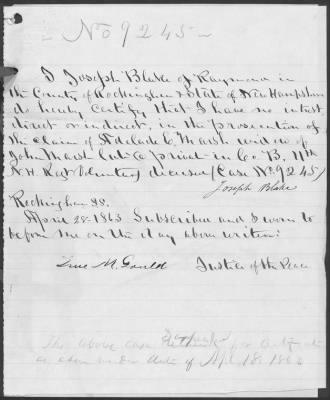 No 9245
I Joseph Blake of Raymond in
the County of Rockingham & State of New Hampshire
do hereby certify that I have no interest
direct or indirect, in the prosecution of
the claim of Adelade C. Marsh widow of
John Marsh late a private in Co B. 11th
N.H. Regt Volunteers deceased (Case No 9245)
Joseph Blake
Rockingham SS.
April 28-1863 Subscribed and sworn to
before me on the day above written:
M. Gould Justice of the Peace
The above case
as above under date of Apl. 18. 1863